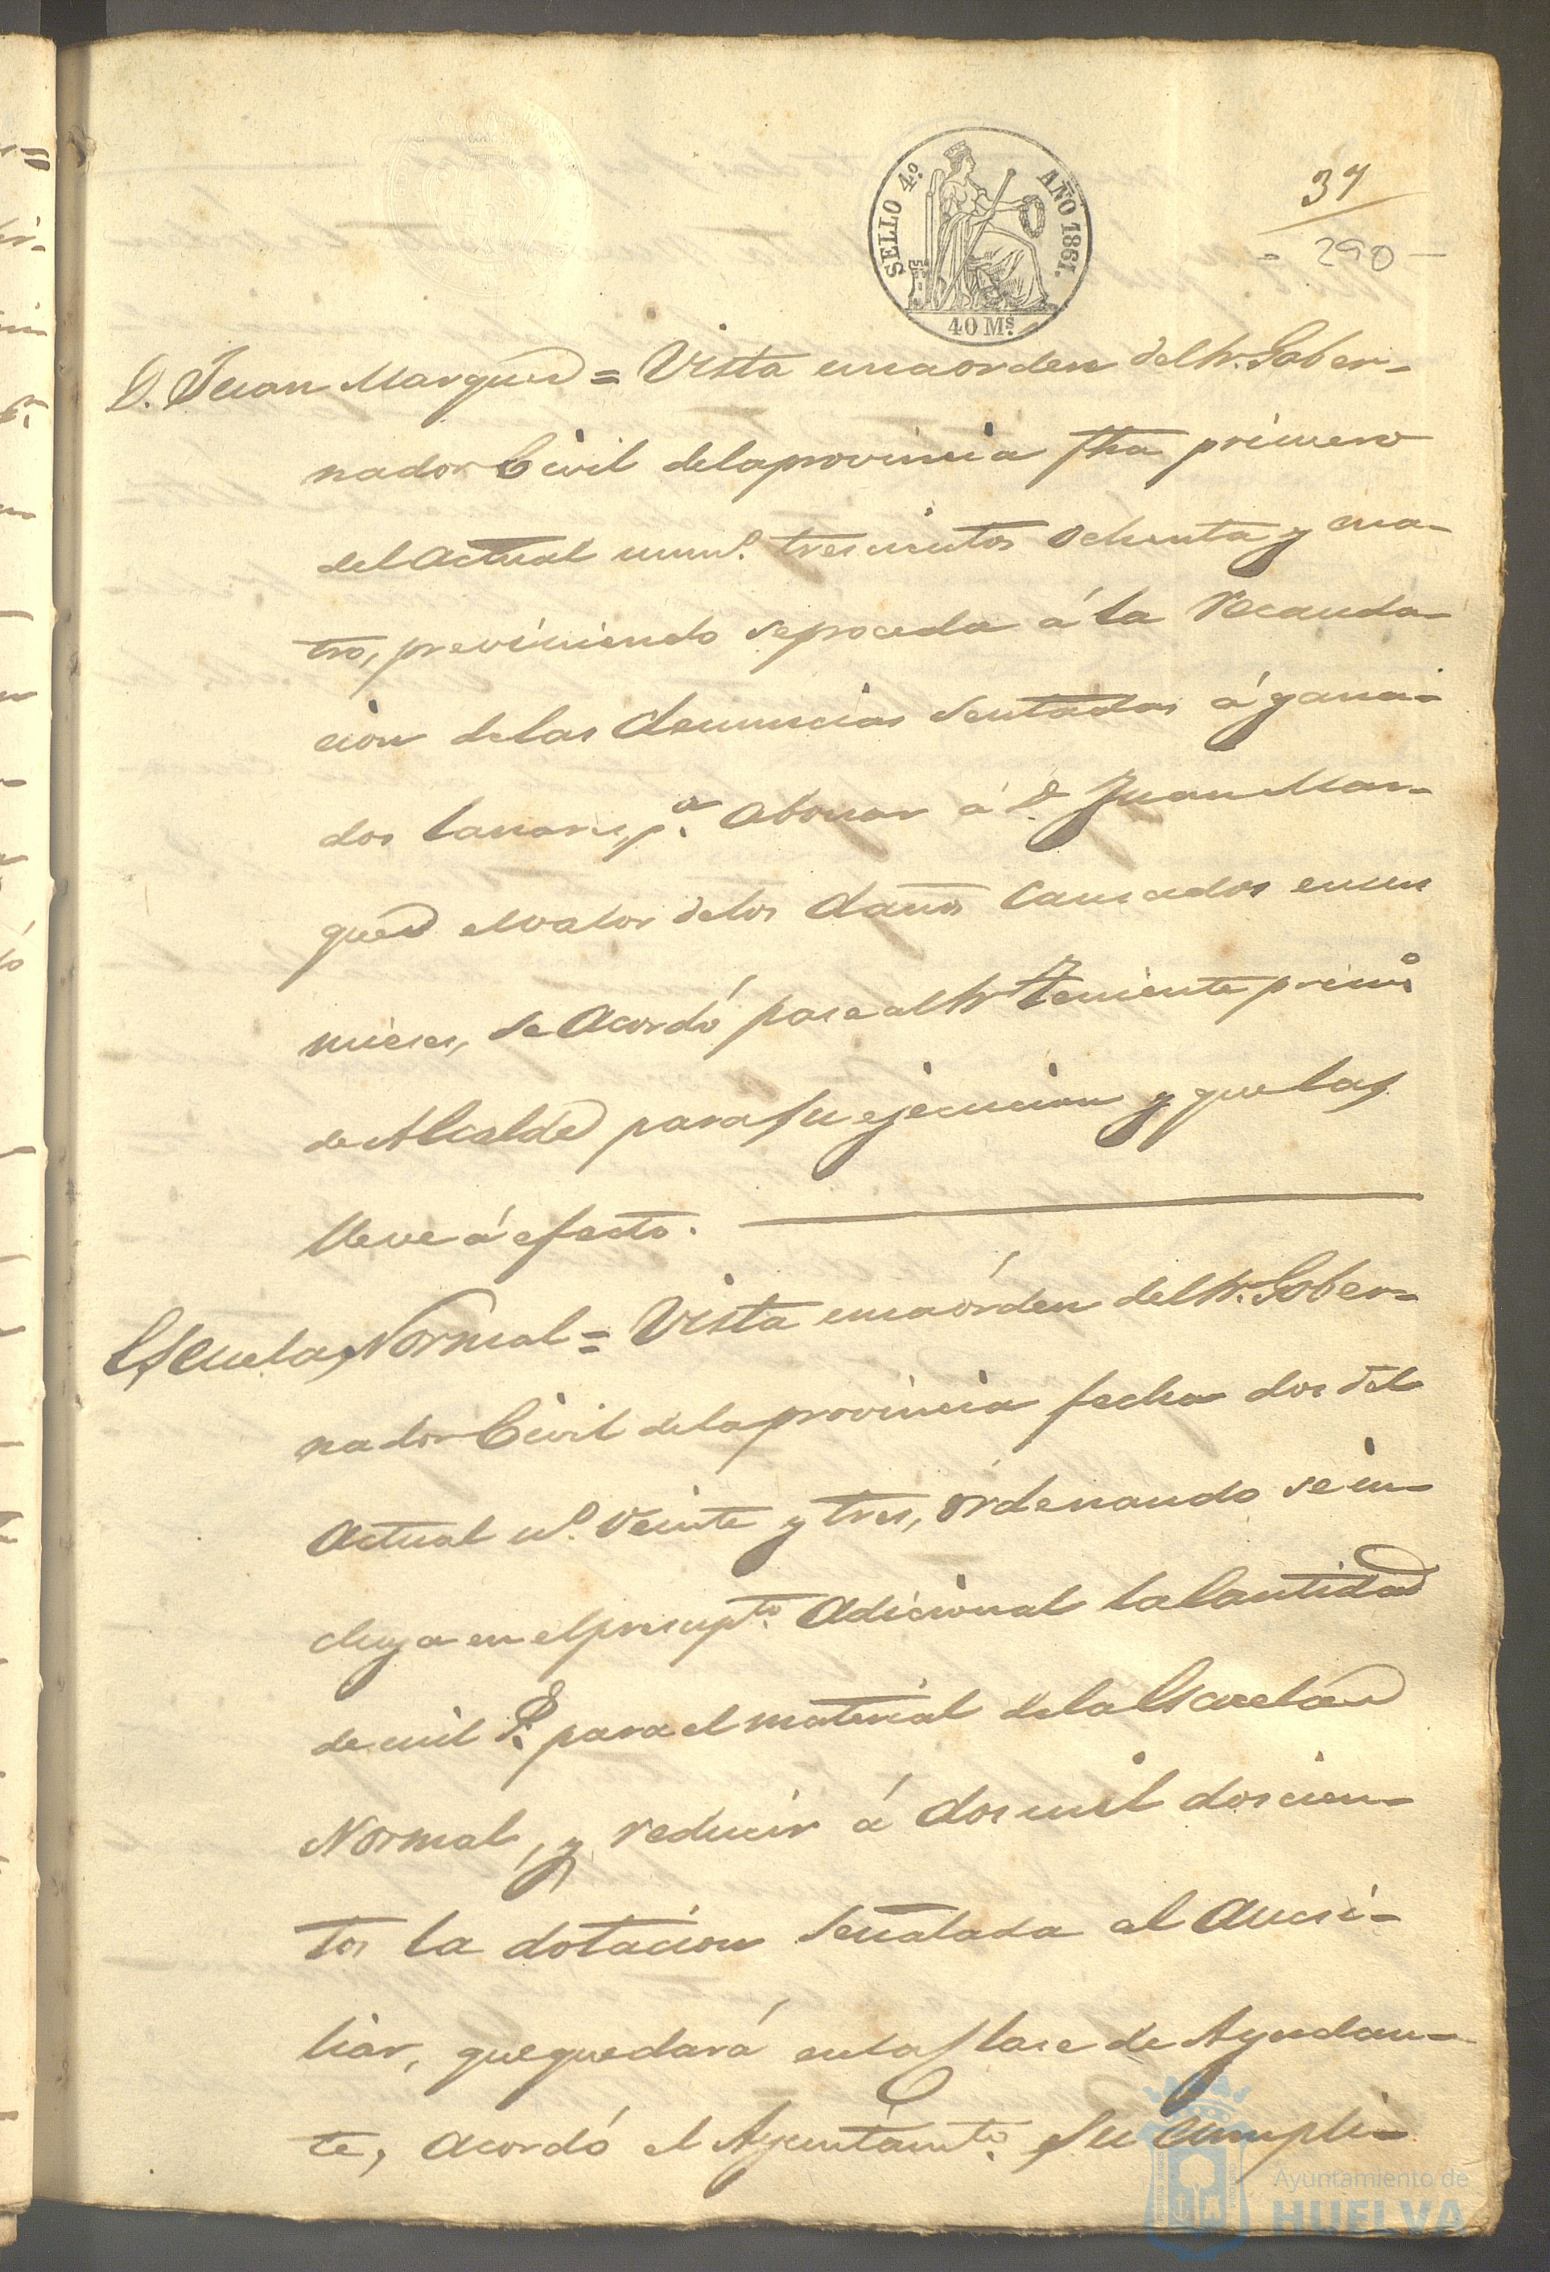 SELLO 4.º AÑO 1861.
40 Ms.
37
- 290 -
D. Juan Marquez = Vista una orden del Sr. Gober-
nador Civil de la provincia fha primero
del actual num.º trescientos ochenta y cua-
tro, previniendo se proceda á la recauda-
cion de las denuncias sentadas á gana-
dos lanares, p.ª abonar á D. Juan Mar-
quez el valor de los daños causados en sus
mieses, se acordó pase al Sr Teniente prim.º
de Alcalde para su ejecucion y que las
lleve á efecto.
Escuela Normal = Vista una órden del Sr. Gober-
nador Civil de la provincia fecha dos del
actual n.º veinte y tres, órdenando se in-
cluya en el presup.to adicional la Cantidad
de mil para el material de la Escuela
Normal, y reducir á dos mil doscien-
tos la dotacion señalada al Aucsi-
liar, que quedará en la Clase de Ayudan-
te, acordó el Ayuntamto. su cumpli-
Ayuntamiento de
HUELVA